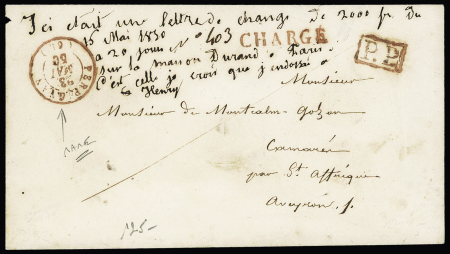 Ici était une lettre de change de 2000 fr. du
15 Mai 1850
a 20 jours N° 403
sur la maison Durand à Paris.
C'est celle je crois que j'endossai à
Henry
CHARGÉ
P.P.
PERPIGNAN
23
MAI
50
Monsieur
Monsieur de Montcalm-Gozon
Camarès
par St Affrique
Aveyron.
RARE
125-